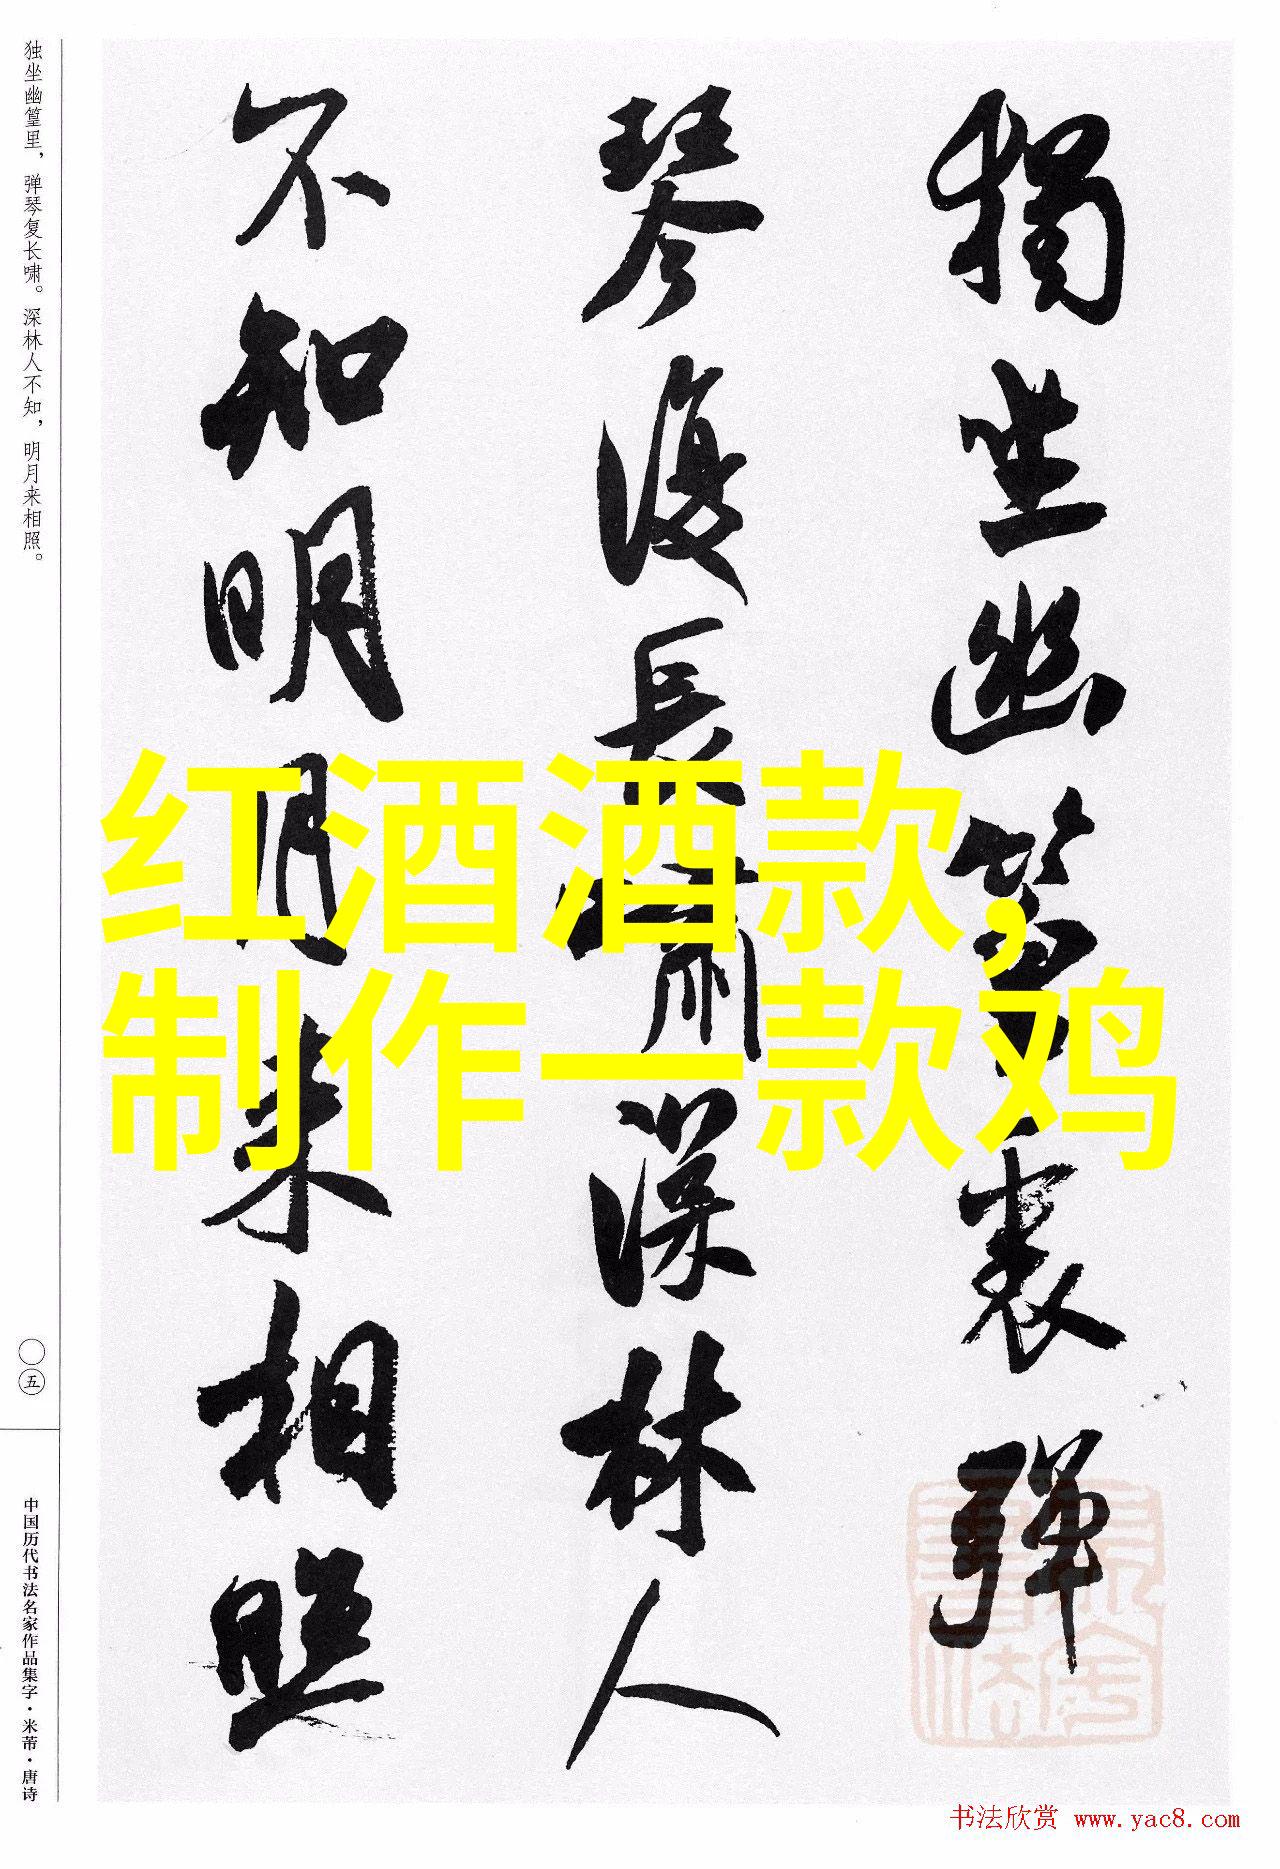 独坐幽篁里，弹琴复长啸。深林人不知，明月来相照。
獨坐幽篁裏彈
琴復長嘯深林人
不知明月来相照
红酒酒款，
制作一款鸡
五
中国历代书法名家作品集字·米芾·唐诗
书法欣赏 www.yac8.com